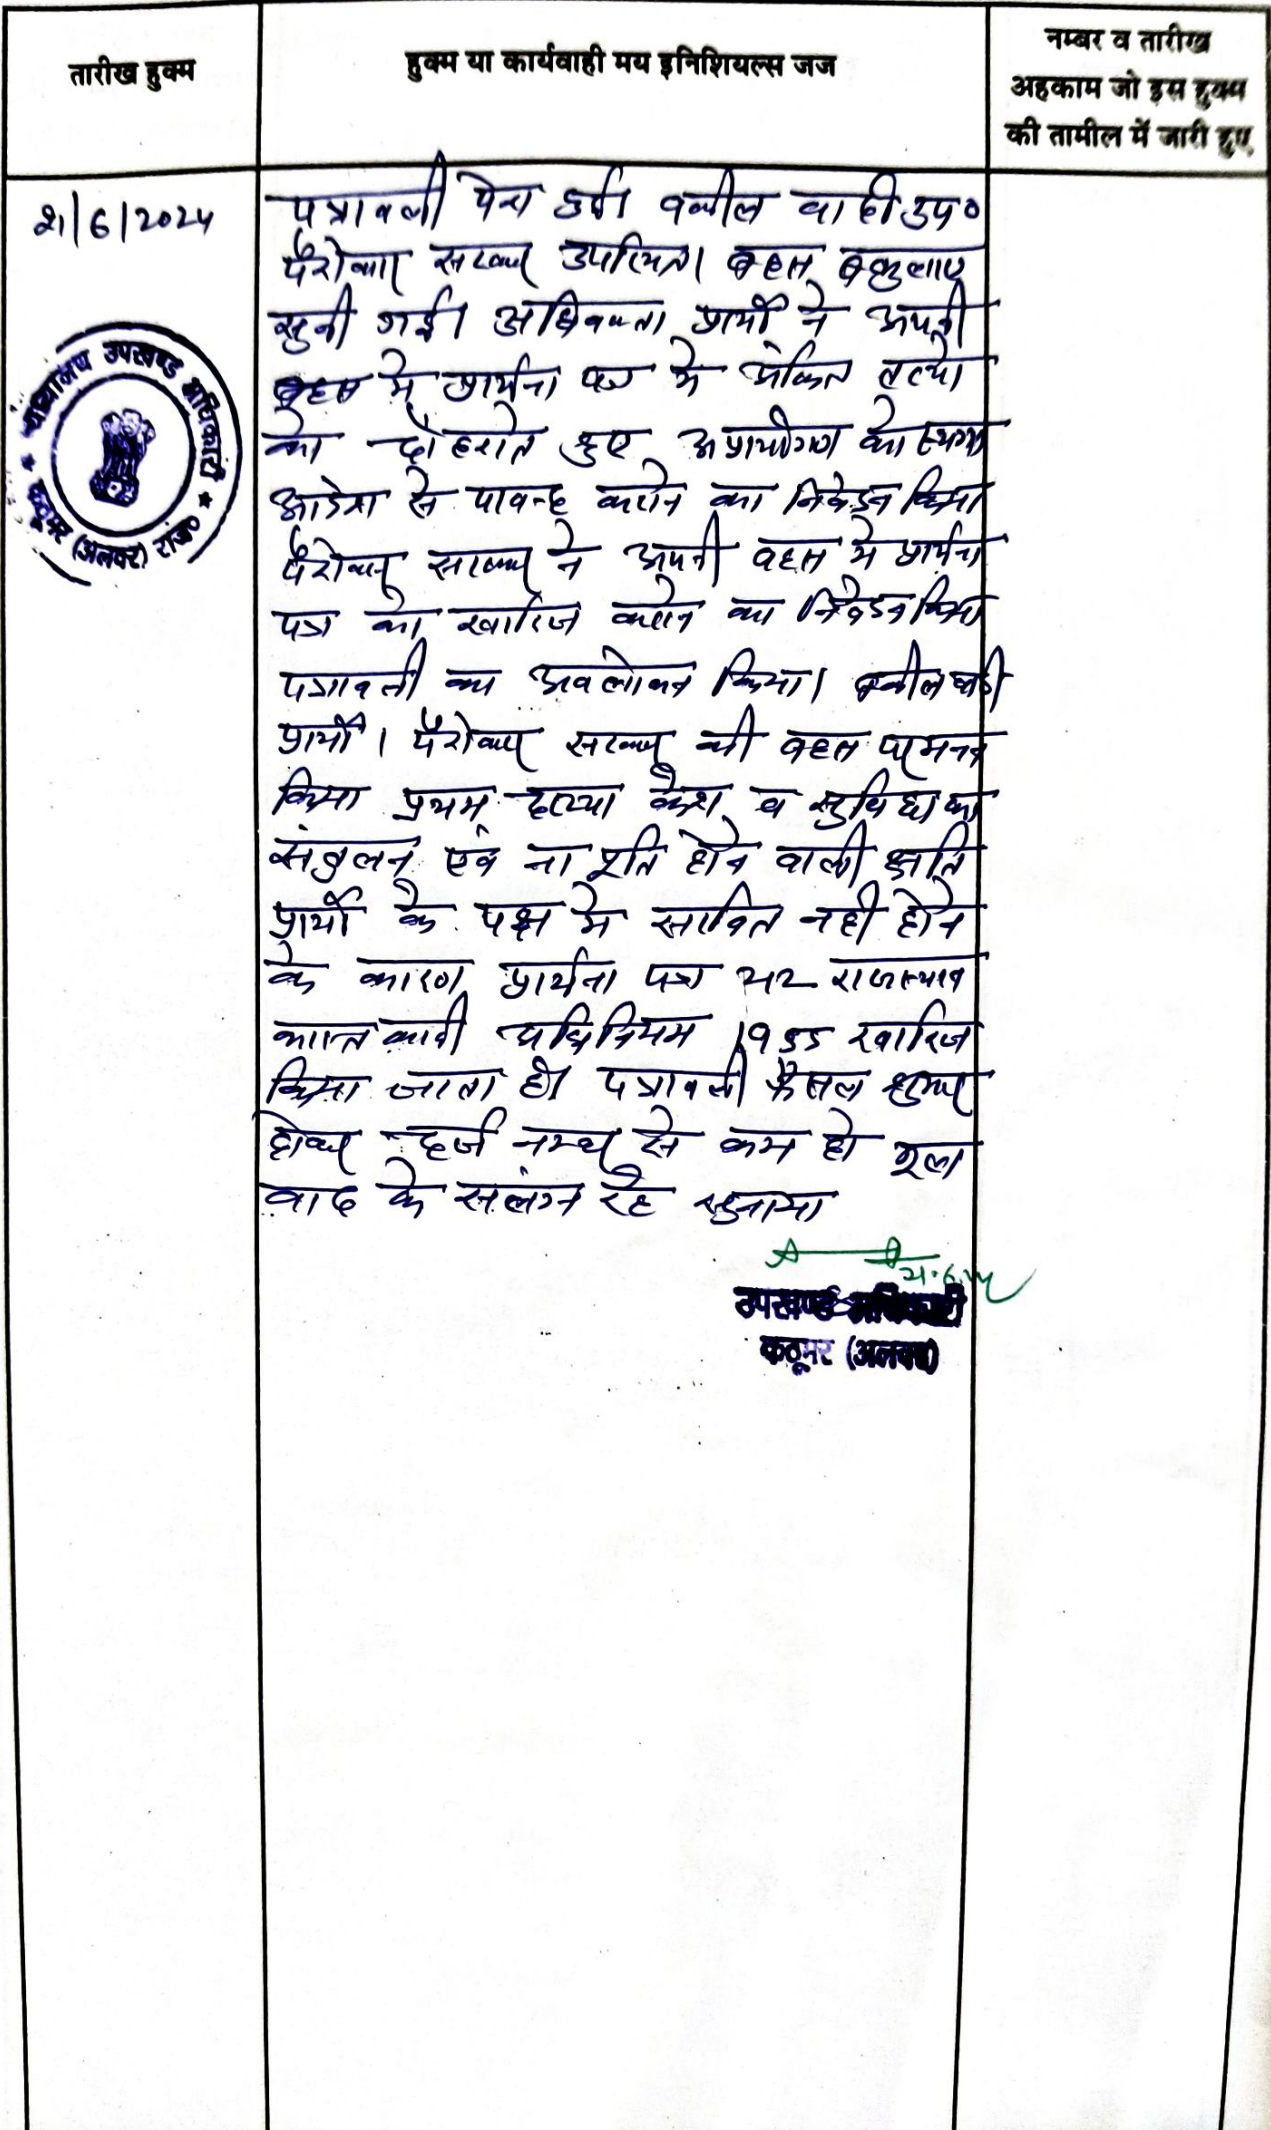 तारीख हुक्म
हुक्म या कार्यवाही मय इनिशियल्स जज
नम्बर व तारीख
अहकाम जो इस हुक्म
की तामील में जारी हुए
21/6/2024
पत्रावली पेश हुई। वकील वादी उप०
पैरोकार सरकार उपस्थित। बहस
सुनी गई। अधिवक्ता प्रार्थी ने अपनी
बहस मे प्रार्थना पत्र मे अंकित तथ्यो
को दोहराते हुए अप्रार्थीगण को स्थगन
आदेश से पाबन्द करने का निवेदन किया
पैरोकार सरकार ने अपनी बहस मे प्रार्थना
पत्र को खारिज करने का निवेदन किया
पत्रावली का अवलोकन किया। वकील वादी
प्रार्थी। पैरोकार सरकार की बहस पर मनन
किया प्रथम दृष्टया केश व सुविधा का
संतुलन एंव ना पूर्ति होने वाली क्षति
प्रार्थी के पक्ष मे साबित नही होने
के कारण प्रार्थना पत्र 212 राजस्थान
काश्तकारी अधिनियम 1955 खारिज
किया जाता है। पत्रावली फैसल शुमार
होकर दर्ज नम्बर से कम हो मूल
वाद के संलग्न रहे सुनाया
21.6.24
उपखण्ड अधिकारी
कठूमर (अलवर)
न्यायालय उपखण्ड अधिकारी
कठूमर (अलवर) राज०